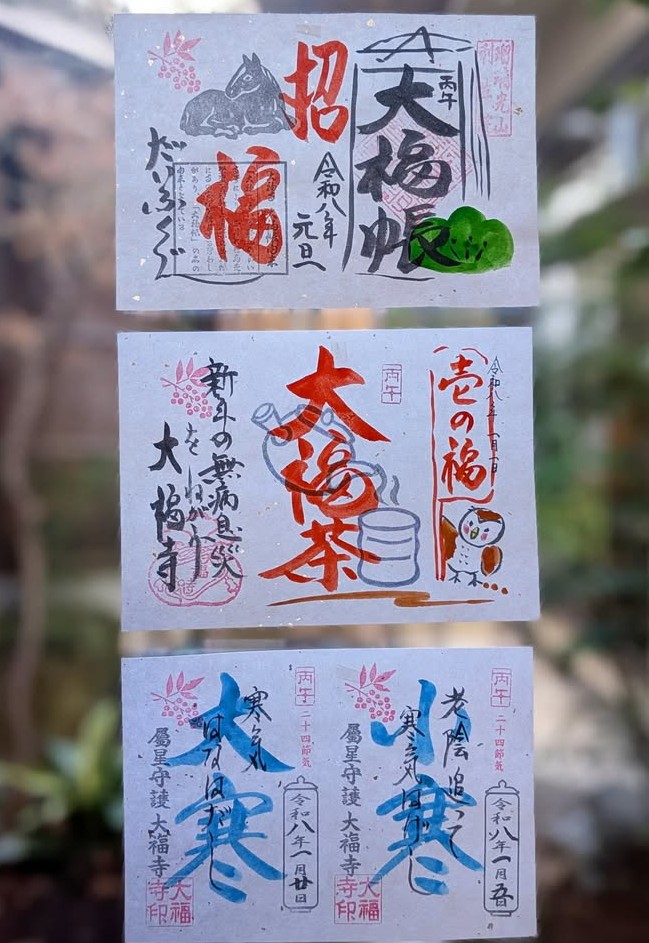 瑠璃光山
丙午
大福帳
招
福
令和八年
元旦
だいふくじ
令和八年一月一日
壱の福
丙午
大福茶
新年の無病息災
をねがり
大福寺
丙午
二十四節気
令和八年一月五日
小寒
老陰追って
寒気はげし
属星守護 大福寺
大福
寺印
丙午
二十四節気
令和八年一月廿日
大寒
寒気
はなはだし
属星守護 大福寺
大福
寺印